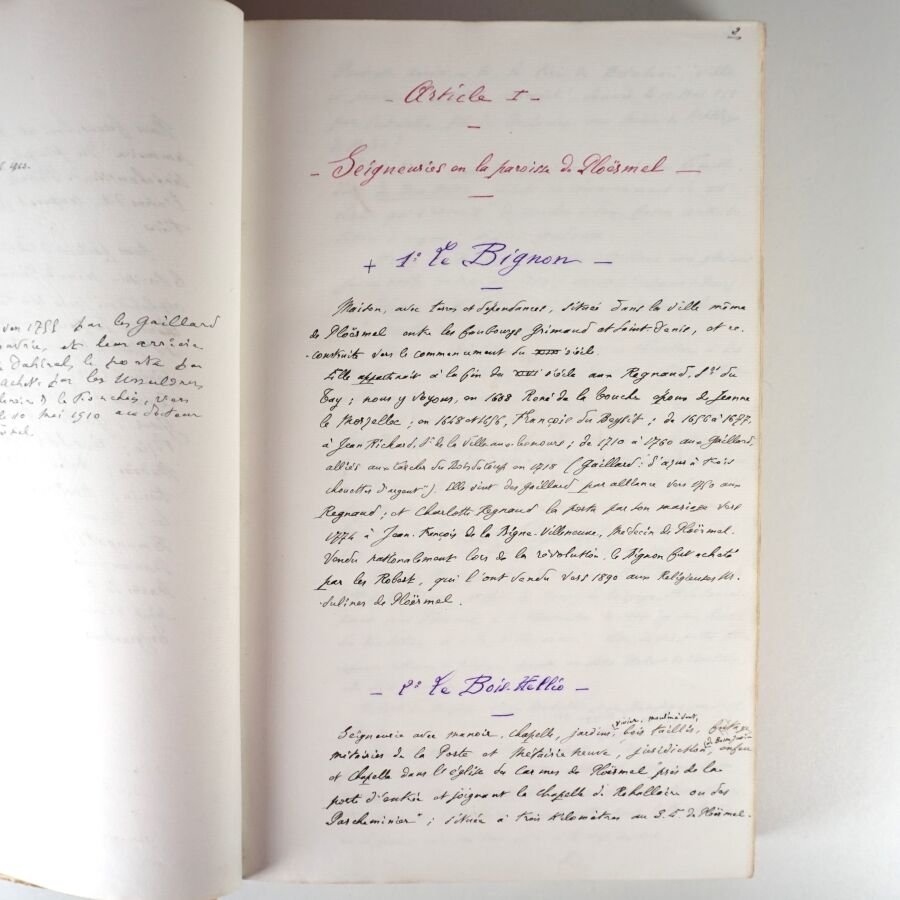 van 1755 par les Gaillard
et leur
la porte par
achete par les Ursulines,
vers
le 10 mai 1910 au docteur
3
- Article I -
- Seigneuries en la paroisse de Ploërmel -
+ 1° Le Bignon -
Maison, avec terres et dependances, située dans la ville même
de Ploërmel entre les faubourgs Grimaud et Saint-Denis, et re-
-construite vers le commencement du XVIII siècle.
Elle appartenait à la fin du siècle aux Regnaud, Srs du
Tay ; nous y voyons, en 1608 René de la Couche époux de Jeanne
le Morzellec ; en 1648 et 1656, François du Beysit ; de 1656 à 1677,
à Jean Richard, Sr de la Ville-aux- ; de 1710 à 1760 aux Gaillard,
alliés aux du en 1718 (Gaillard : "d'azur à trois
chouettes d'argent"). Elle vint des Gaillard par alliance vers 1750 aux
Regnaud ; et Charlotte Regnaud la porta par son mariage vers
1774 à Jean-François de la Bigne-Villeneuve, médecin de Ploërmel.
Vendu nationalement lors de la révolution, le Bignon fut acheté
par les Robert, qui l'ont vendu vers 1890 aux Religieuses Ur-
-sulines de Ploërmel.
- 2° Le Bois-Hellio -
vivier, moulin à vent,
Seigneurie avec manoir, chapelle, jardins, bois taillés,
métairies de la Porte et Métairie neuve, juridiction, enfeu
et chapelle dans l'église des Carmes de Ploërmel "près de la
porte d'entrée et joignant la chapelle de Rehallaire ou des
Parcheminier" ; située à trois kilomètres au S.E. de Ploërmel.